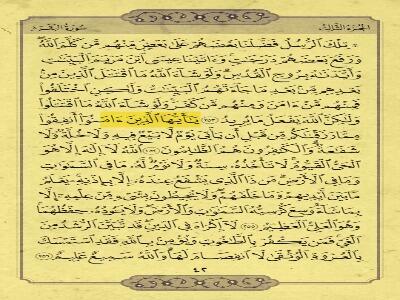 الجزء الثالث سورة البقرة
تلك الرسل فضلنا بعضهم على بعض منهم من كلم الله
ورفع بعضهم درجت وءاتينا عيسى ابن مريم البينت
وأيدنه بروح القدس ولو شاء الله ما اقتتل الذين من
بعدهم من بعد ما جاءتهم البينت ولكن اختلفوا
فمنهم من ءامن ومنهم من كفر ولو شاء الله ما اقتتلوا
ولكن الله يفعل ما يريد ٢٥٣ يأيها الذين ءامنوا أنفقوا
مما رزقنكم من قبل أن يأتي يوم لا بيع فيه ولا خلة ولا
شفعة والكفرون هم الظلمون ٢٥٤ الله لا إله إلا هو
الحي القيوم لا تأخذه سنة ولا نوم له ما في السموت
وما في الأرض من ذا الذي يشفع عنده إلا بإذنه يعلم
ما بين أيديهم وما خلفهم ولا يحيطون بشيء من علمه إلا
بما شاء وسع كرسيه السموت والأرض ولا يئوده حفظهما
وهو العلي العظيم ٢٥٥ لا إكراه في الدين قد تبين الرشد من
الغي فمن يكفر بالطغوت ويؤمن بالله فقد استمسك
بالعروة الوثقى لا انفصام لها والله سميع عليم ٢٥٦
٤٢